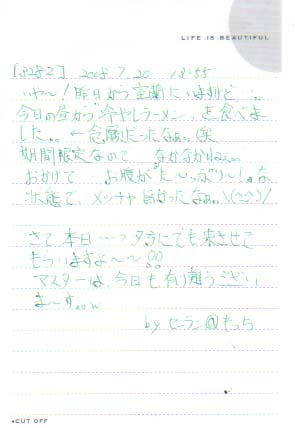 LIFE IS BEAUTIFUL
[3282] 2008.7.20 13:55
いや〜!昨日から室蘭にいますけど…
今日の昼から"冷やしラーメン"を食べま
した… ← 念願だったなぁ…(笑
期間限定なので なかなかねぇ…
おかげで お腹が"た〜っぷり〜!"な
状態で、メッチャ 旨かったなぁ…\(^^)/
さて、本日… 夕方にでも来させて
もらいますよ〜〜!!
マスターは、今日も有り難うござい
ま〜す。
by セーラン@もっち
•CUT OFF